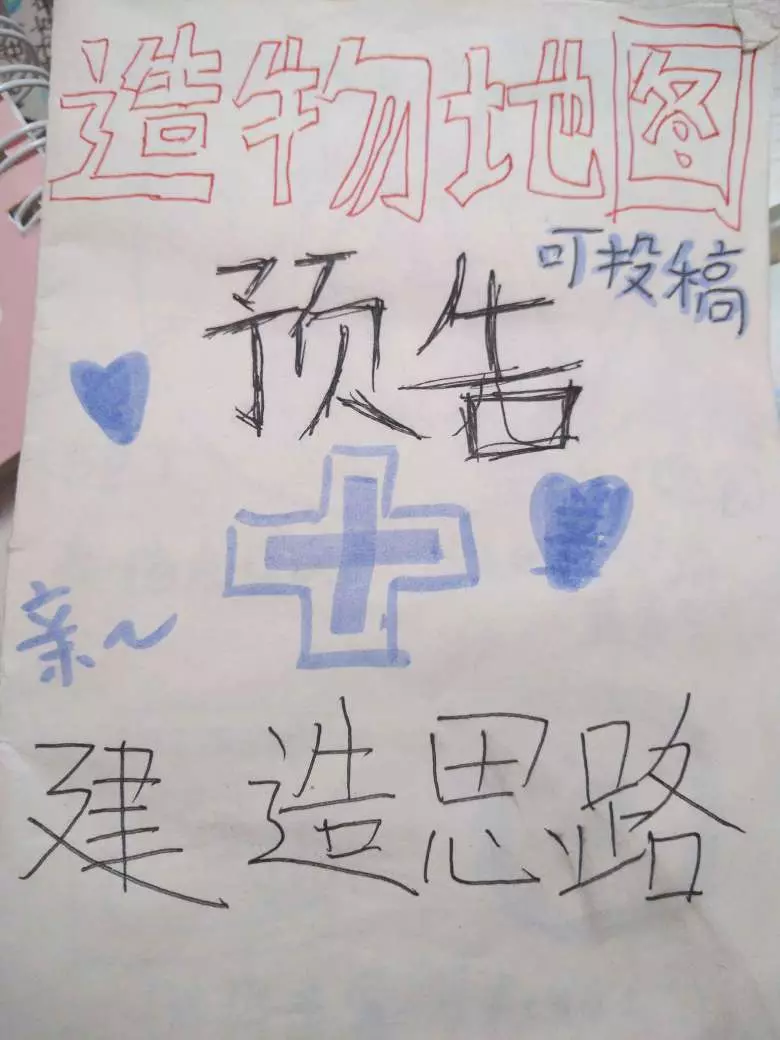 造物地图
可投稿
预告
亲~
建造思路